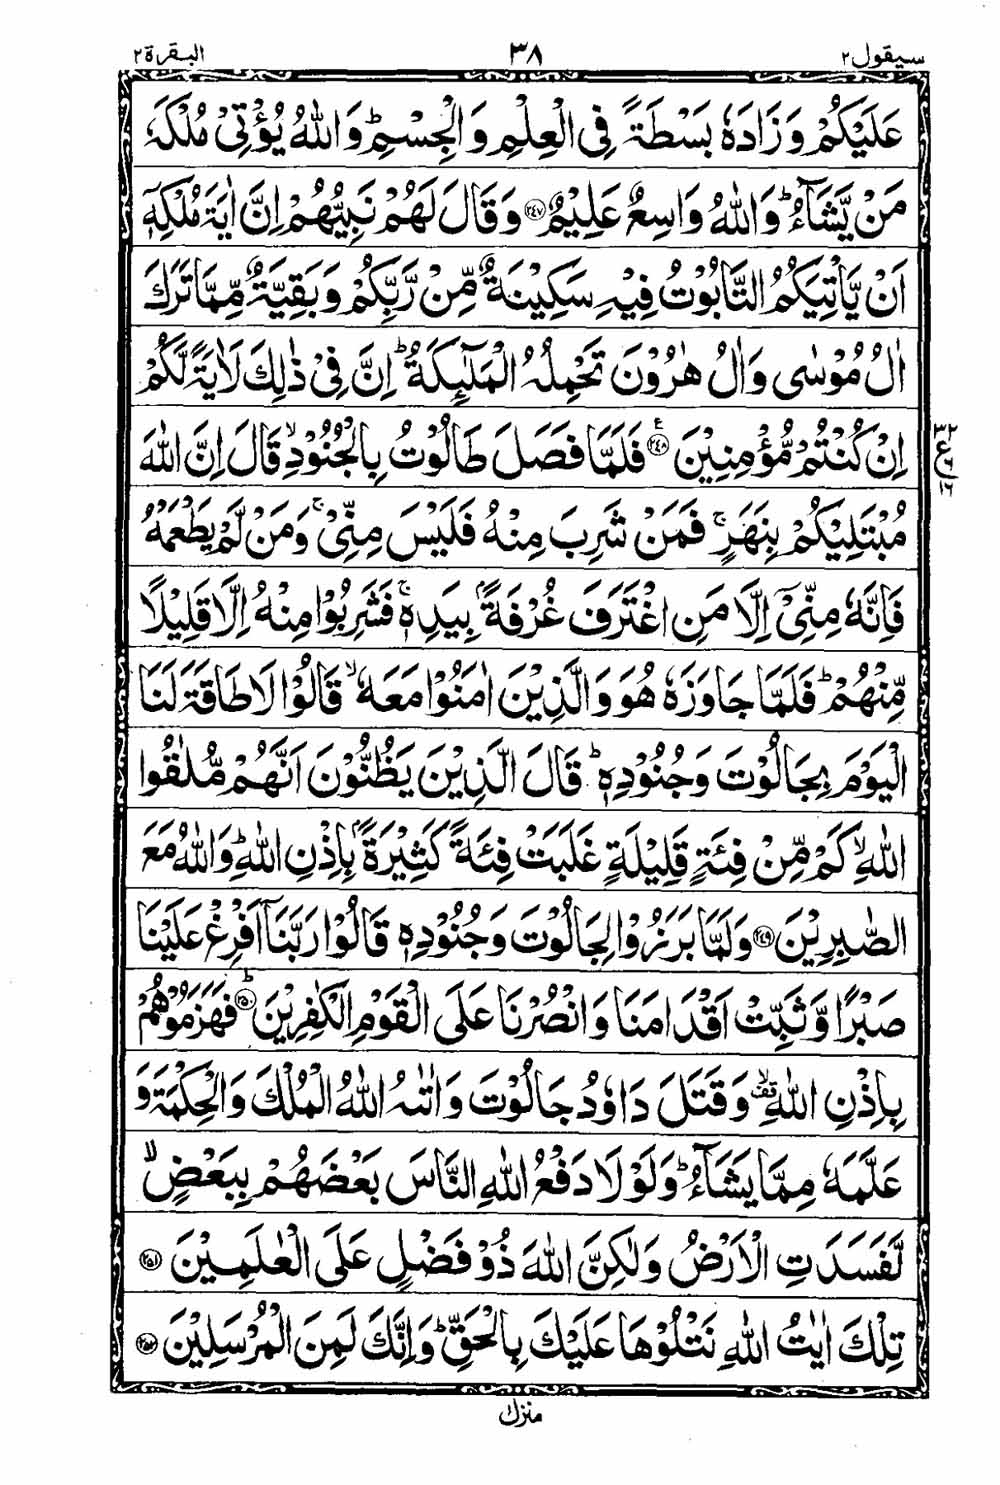 سيقول ٢
٣٨
البقرة ٢
عَلَيْكُمْ وَزَادَهٗ بَسْطَةً فِي الْعِلْمِ وَالْجِسْمِ ؕ وَاللّٰهُ يُؤْتِيْ مُلْكَهٗ
مَنْ يَّشَآءُ ؕ وَاللّٰهُ وَاسِعٌ عَلِيْمٌ ﴿٢٤٧﴾ وَقَالَ لَهُمْ نَبِيُّهُمْ اِنَّ اٰيَةَ مُلْكِهٖۤ
اَنْ يَّاْتِيَكُمُ التَّابُوْتُ فِيْهِ سَكِيْنَةٌ مِّنْ رَّبِّكُمْ وَبَقِيَّةٌ مِّمَّا تَرَكَ
اٰلُ مُوْسٰى وَاٰلُ هٰرُوْنَ تَحْمِلُهُ الْمَلٰٓئِكَةُ ؕ اِنَّ فِيْ ذٰلِكَ لَاٰيَةً لَّكُمْ
اِنْ كُنْتُمْ مُّؤْمِنِيْنَ ﴿٢٤٨﴾ فَلَمَّا فَصَلَ طَالُوْتُ بِالْجُنُوْدِ ۙ قَالَ اِنَّ اللّٰهَ
٣٢
ع
٦
١٦
مُبْتَلِيْكُمْ بِنَهَرٍ ۚ فَمَنْ شَرِبَ مِنْهُ فَلَيْسَ مِنِّيْ ۚ وَمَنْ لَّمْ يَطْعَمْهُ
فَاِنَّهٗ مِنِّيْۤ اِلَّا مَنِ اغْتَرَفَ غُرْفَةًۢ بِيَدِهٖ ۚ فَشَرِبُوْا مِنْهُ اِلَّا قَلِيْلًا
مِّنْهُمْ ؕ فَلَمَّا جَاوَزَهٗ هُوَ وَالَّذِيْنَ اٰمَنُوْا مَعَهٗ ۙ قَالُوْا لَا طَاقَةَ لَنَا
الْيَوْمَ بِجَالُوْتَ وَجُنُوْدِهٖ ؕ قَالَ الَّذِيْنَ يَظُنُّوْنَ اَنَّهُمْ مُّلٰقُوا
اللّٰهِ ۙ كَمْ مِّنْ فِئَةٍ قَلِيْلَةٍ غَلَبَتْ فِئَةً كَثِيْرَةًۢ بِاِذْنِ اللّٰهِ ؕ وَاللّٰهُ مَعَ
الصّٰبِرِيْنَ ﴿٢٤٩﴾ وَلَمَّا بَرَزُوْا لِجَالُوْتَ وَجُنُوْدِهٖ قَالُوْا رَبَّنَاۤ اَفْرِغْ عَلَيْنَا
صَبْرًا وَّثَبِّتْ اَقْدَامَنَا وَانْصُرْنَا عَلَى الْقَوْمِ الْكٰفِرِيْنَ ﴿٢٥٠﴾ ؕ فَهَزَمُوْهُمْ
بِاِذْنِ اللّٰهِ ۙ قف وَقَتَلَ دَاوٗدُ جَالُوْتَ وَاٰتٰىهُ اللّٰهُ الْمُلْكَ وَالْحِكْمَةَ وَ
عَلَّمَهٗ مِمَّا يَشَآءُ ؕ وَلَوْلَا دَفْعُ اللّٰهِ النَّاسَ بَعْضَهُمْ بِبَعْضٍ ۙ
لَّفَسَدَتِ الْاَرْضُ وَلٰكِنَّ اللّٰهَ ذُوْ فَضْلٍ عَلَى الْعٰلَمِيْنَ ﴿٢٥١﴾
تِلْكَ اٰيٰتُ اللّٰهِ نَتْلُوْهَا عَلَيْكَ بِالْحَقِّ ؕ وَاِنَّكَ لَمِنَ الْمُرْسَلِيْنَ ﴿٢٥٢﴾
منزل